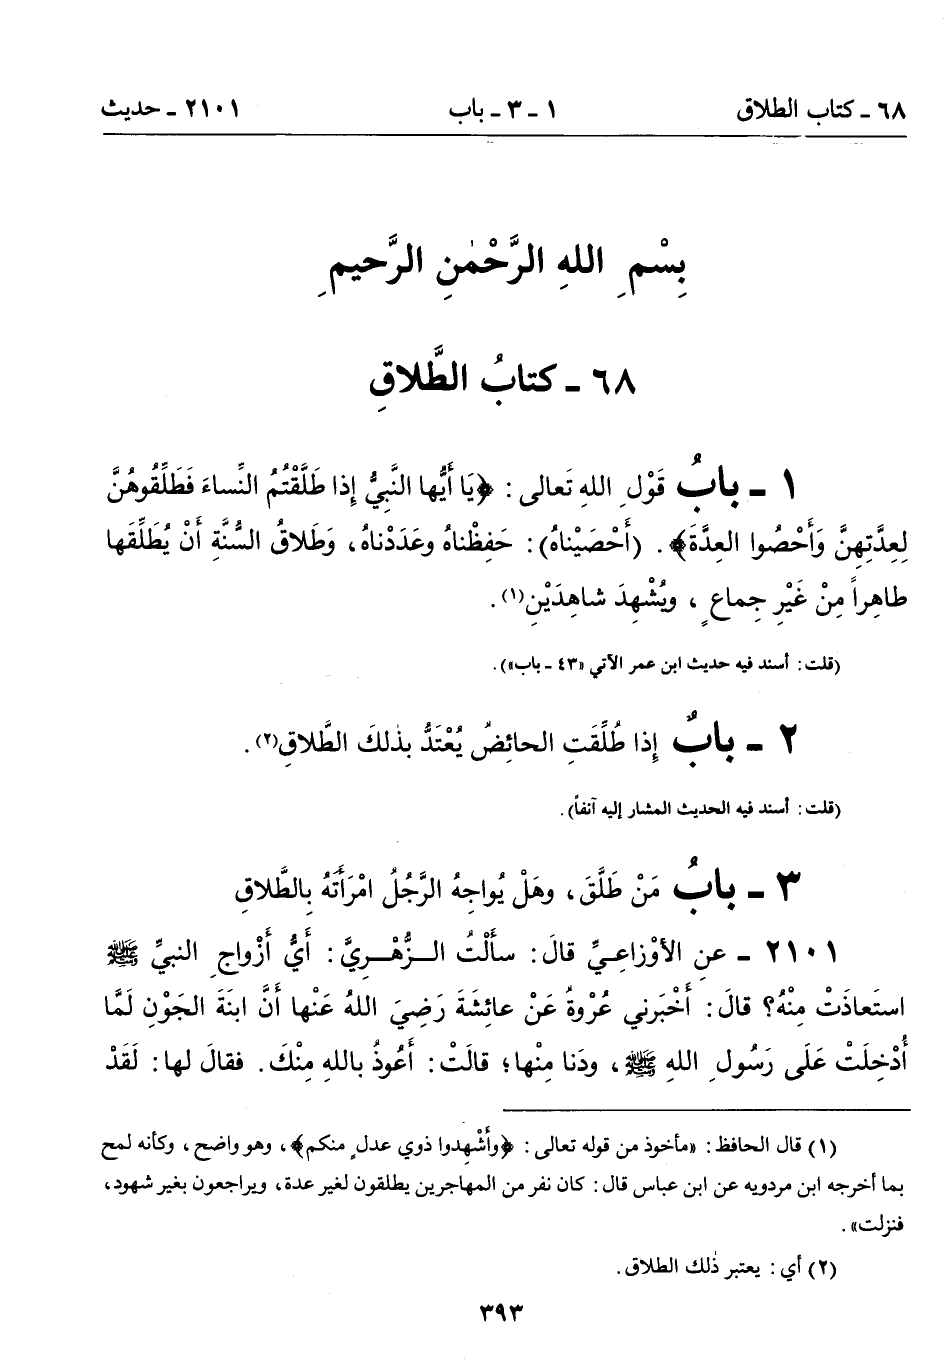 ٦٨ - كتاب الطلاق ١ - ٣ - باب ٢١٠١ - حديث
بِسْمِ اللهِ الرَّحْمٰنِ الرَّحيمِ
٦٨ - كتابُ الطَّلاقِ
١ - بابُ قَوْلِ اللهِ تَعالى: ﴿يَا أَيُّها النَّبِيُّ إِذا طَلَّقْتُمُ النِّساءَ فَطَلِّقُوهُنَّ
لِعِدَّتِهِنَّ وَأَحْصُوا العِدَّةَ﴾. (أَحْصَيْناهُ): حَفِظْناهُ وعَدَدْناهُ، وَطَلاقُ السُّنَّةِ أَنْ يُطَلِّقَها
طاهِراً مِنْ غَيْرِ جِماعٍ، ويُشْهِدَ شاهِدَيْنِ(١).
(قلت: أسند فيه حديث ابن عمر الآتي «٤٣ - باب»).
٢ - بابٌ إِذا طُلِّقَتِ الحائِضُ يُعْتَدُّ بذٰلكَ الطَّلاقِ(٢).
(قلت: أسند فيه الحديث المشار إليه آنفاً).
٣ - بابُ مَنْ طَلَّقَ، وهَلْ يُواجِهُ الرَّجُلُ امْرَأَتَهُ بِالطَّلاقِ
٢١٠١ - عنِ الأوْزاعِيِّ قالَ: سأَلْتُ الزُّهْرِيَّ: أَيُّ أَزْواجِ النبيِّ ﷺ
استَعاذَتْ مِنْهُ؟ قالَ: أَخْبَرني عُرْوةُ عَنْ عائِشَةَ رَضِيَ اللهُ عَنْها أَنَّ ابنَةَ الجَوْنِ لَمَّا
أُدْخِلَتْ عَلَى رَسُولِ اللهِ ﷺ، ودَنا مِنْها؛ قالَتْ: أَعُوذُ بالله مِنْكَ. فقالَ لها: لَقَدْ
(١) قال الحافظ: «مأخوذ من قوله تعالى: ﴿وأَشْهِدوا ذوي عدلٍ منكم﴾، وهو واضح، وكأنه لمح
بما أخرجه ابن مردويه عن ابن عباس قال: كان نفر من المهاجرين يطلقون لغير عدة، ويراجعون بغير شهود،
فنزلت».
(٢) أي: يعتبر ذٰلك الطلاق.
٣٩٣